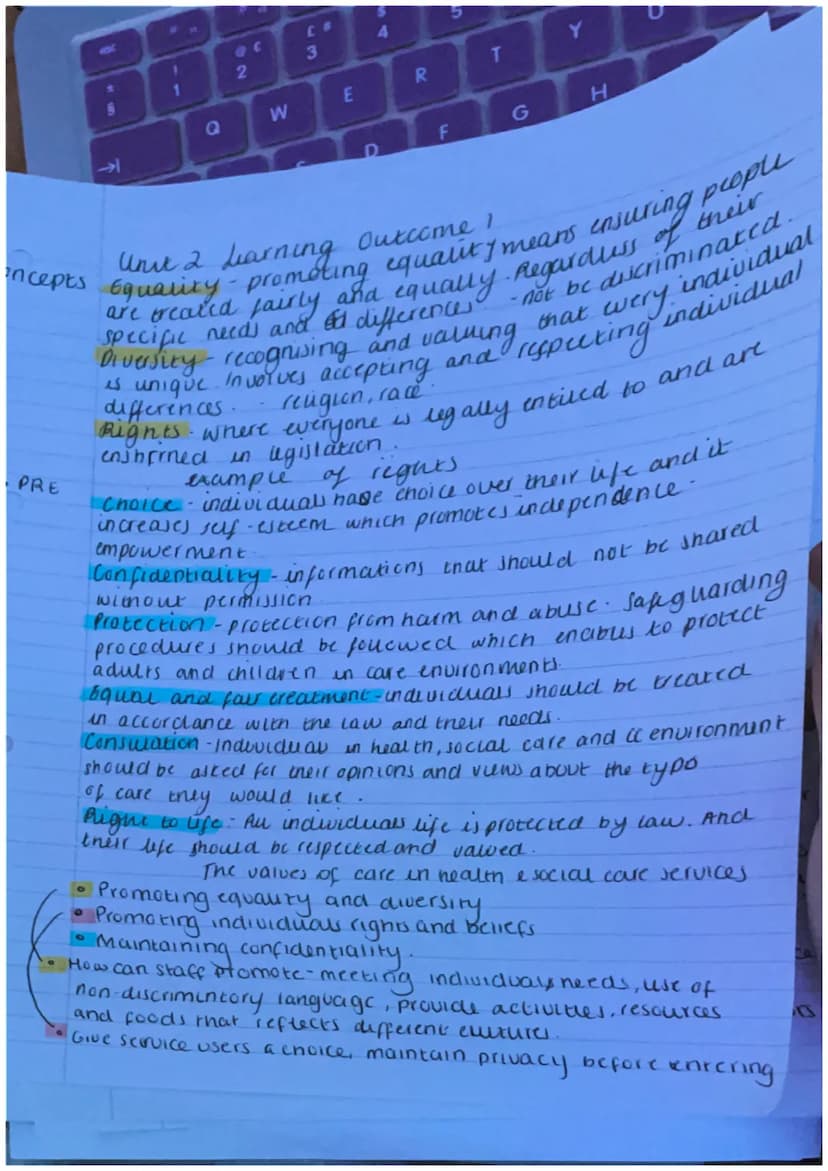 esc
@ €
2
£ #
3
$
4
5
!
1
±
§
Q
W
E
R
T
Y
U
D
F
G
H
Unit 2 Learning Outcome 1
oncepts
Equality - promoting equality means ensuring people
are treated fairly and equally. Regardless of their
specific needs and differences - not be discriminated.
Diversity - recognising and valuing that every individual
is unique. Involves accepting and respecting individual
differences. - religion, race.
Rights - where everyone is legally entitled to and are
enshrined in legislation.
example of rights
PRE
Choice - individuals have choice over their life and it
increases self-esteem which promotes independence.
empowerment
Confidentiality - informations that should not be shared
without permission
Protection - protection from harm and abuse. Safeguarding
procedures should be followed which enables to protect
adults and children in care environments.
Equal and fair treatment - individuals should be treated
in accordance with the law and their needs.
Consulation - individual in health, social care and cc environment
should be asked for their opinions and views about the typo
of care they would like.
Right to life - All individuals life is protected by law. And
their life should be respected and valued.
The values of care in health & social care services
• Promoting equality and diversity
• Promoting individuals rights and beliefs
• Maintaining confidentiality.
• How can staff promote - meeting individuals needs, use of
non-discrimintory language, provide activities, resources
and foods that reflects different cultures.
• Give service users a choice, maintain privacy before entering